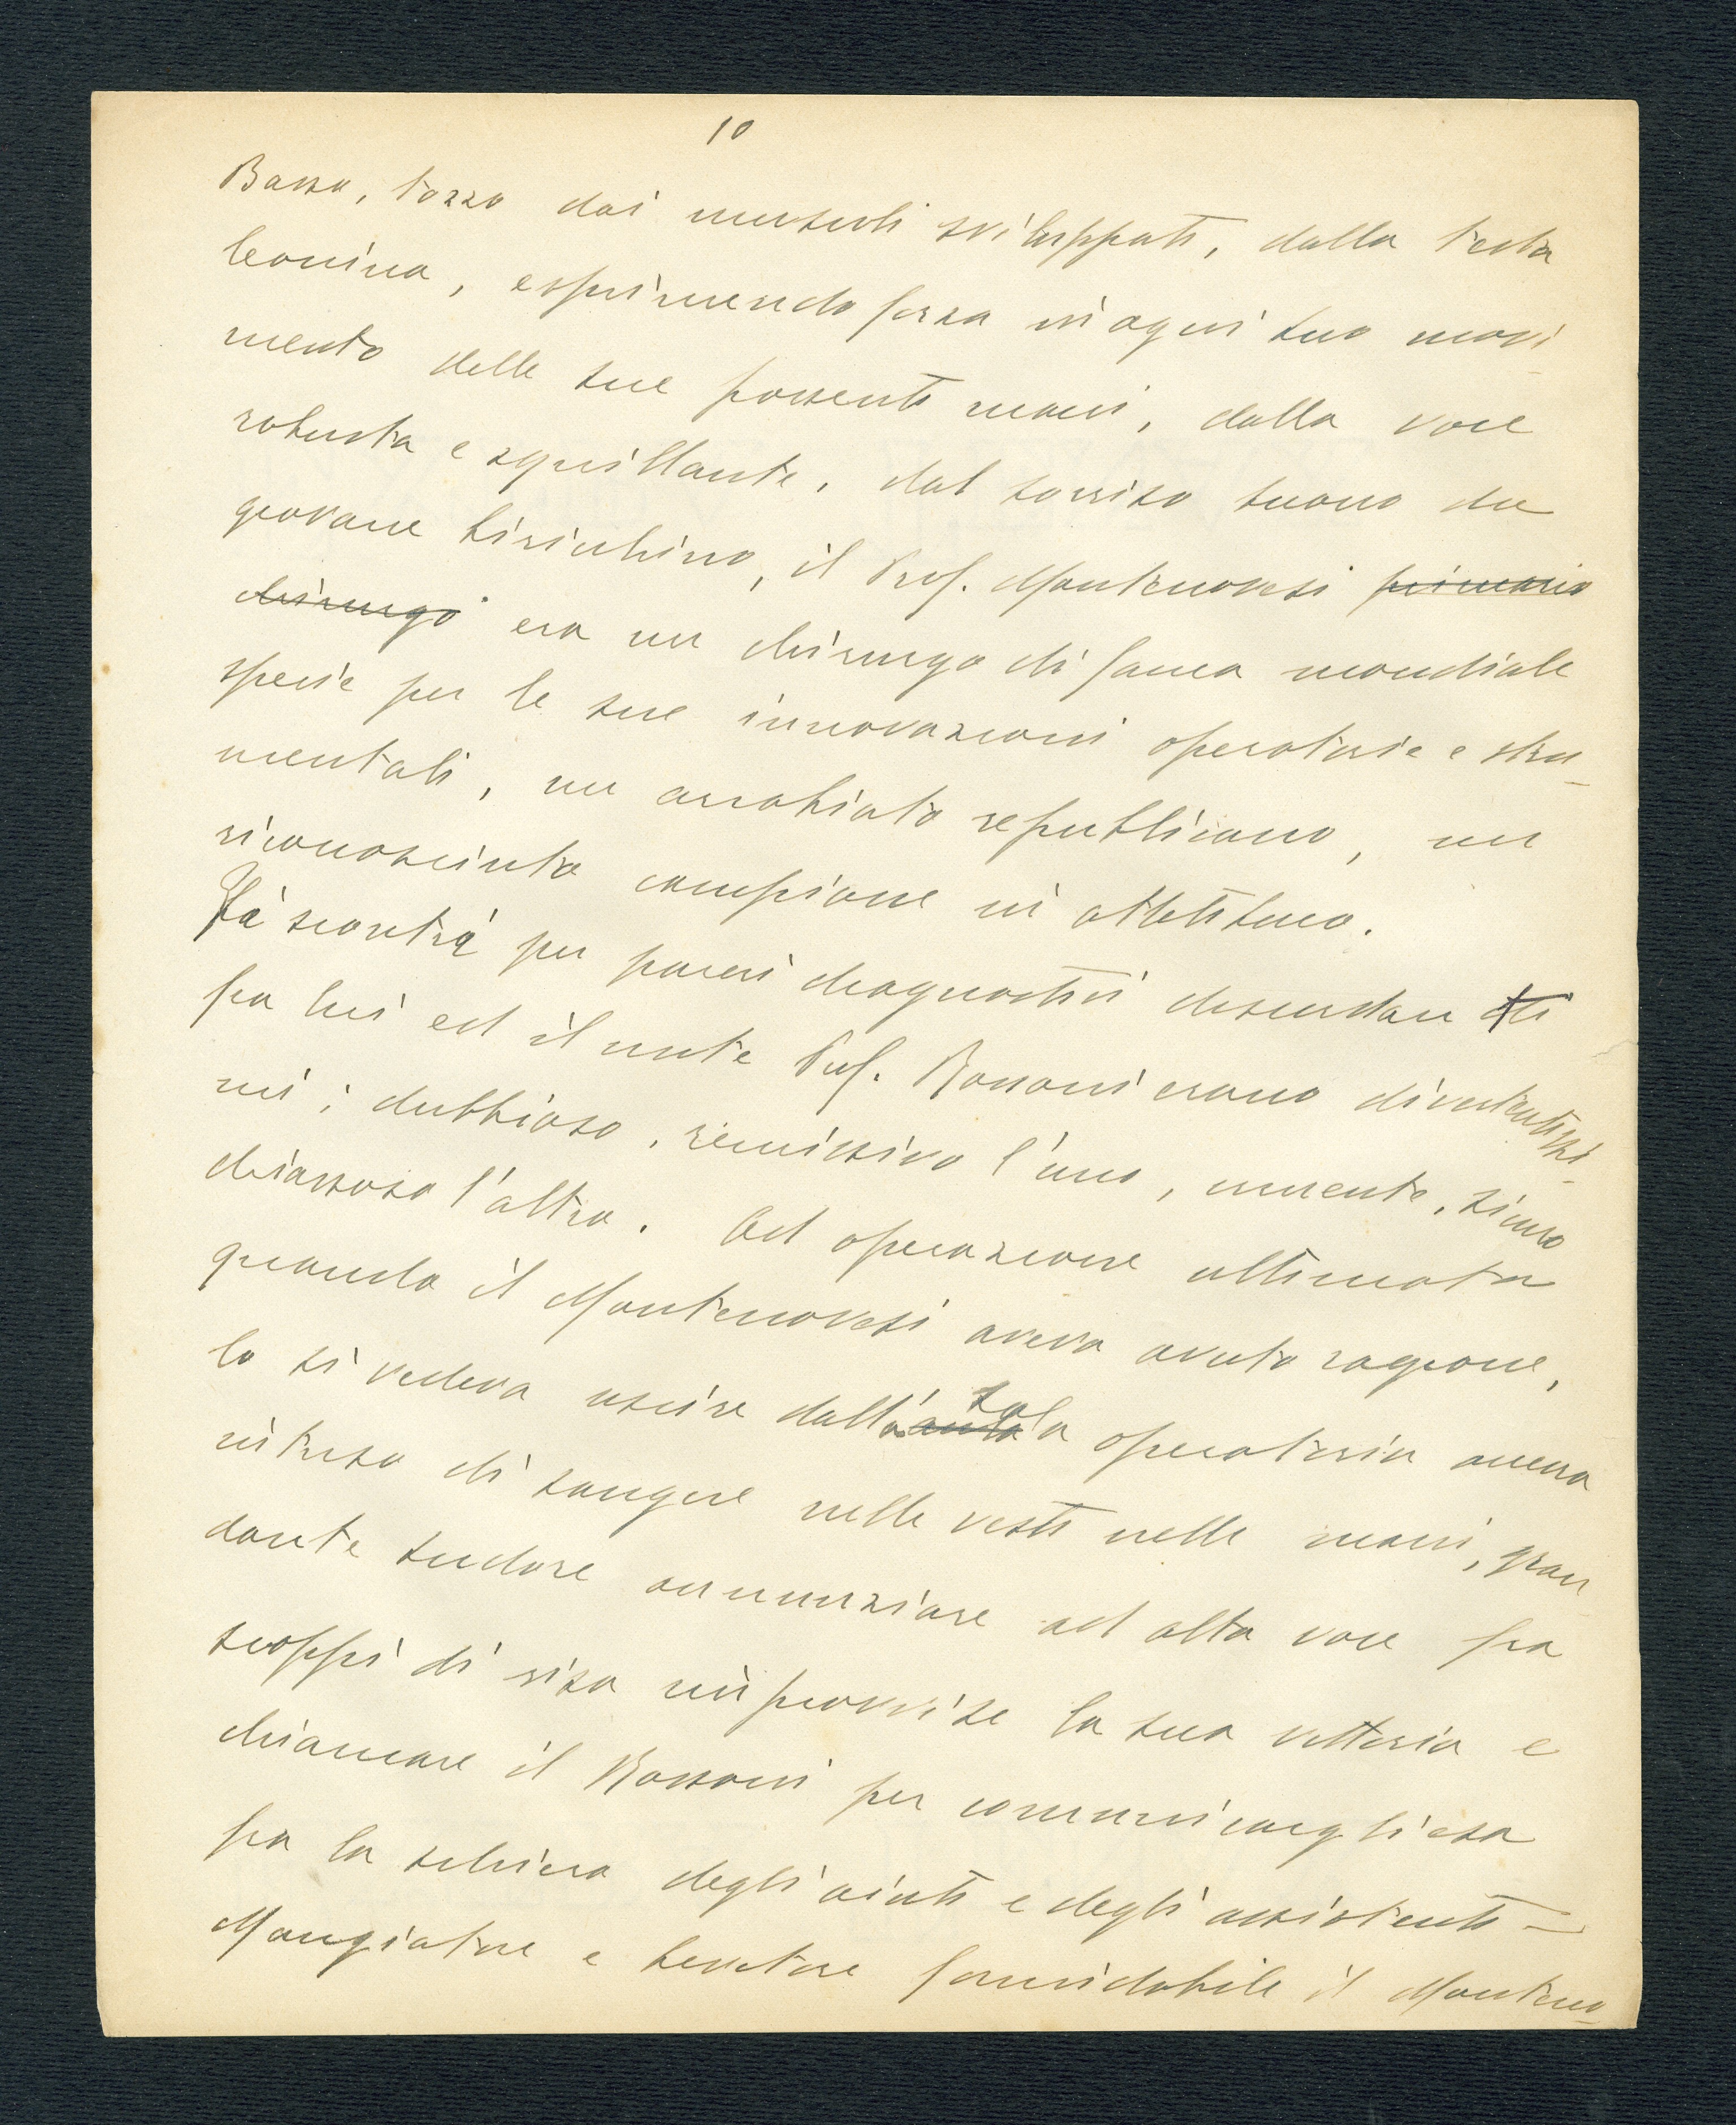 10
Basso, tozzo dai muscoli sviluppati, dalla testa
leonina, esprimendo forza in ogni suo movi
mento delle sue possenti mani, dalla voce
robusta e squillante, dal sorriso buono da
giovane birichino, il Prof. Montenovesi primario
chirurgo era un chirurgo di fama mondiale
specie per le sue innovazioni operatorie e stru-
mentali, un arrabiato republicano, un
riconosciuto campione in atletismo.
scontri per pareri diagnostici discordan ti
fra lui ed il mite Prof. Rossoni erano divertentissi-
mi; dubbioso, remissivo l'uno, irruente, sicuro
chiassoso l'altro. Ad operazione ultimata
quando il Montenovesi aveva avuto ragione,
lo si vedeva uscire dalla sala operatoria ancora
intriso di sangue nelle vesti nelle mani, gron
dante sudore annunziare ad alta voce fra
scoppi di riso improvvise la sua vittoria e
chiamare il Rossoni per communicargliesa
fra la schiera degli aiuti e degli assistenti –
Mangiatore e bevitore formidabile il Monteno-